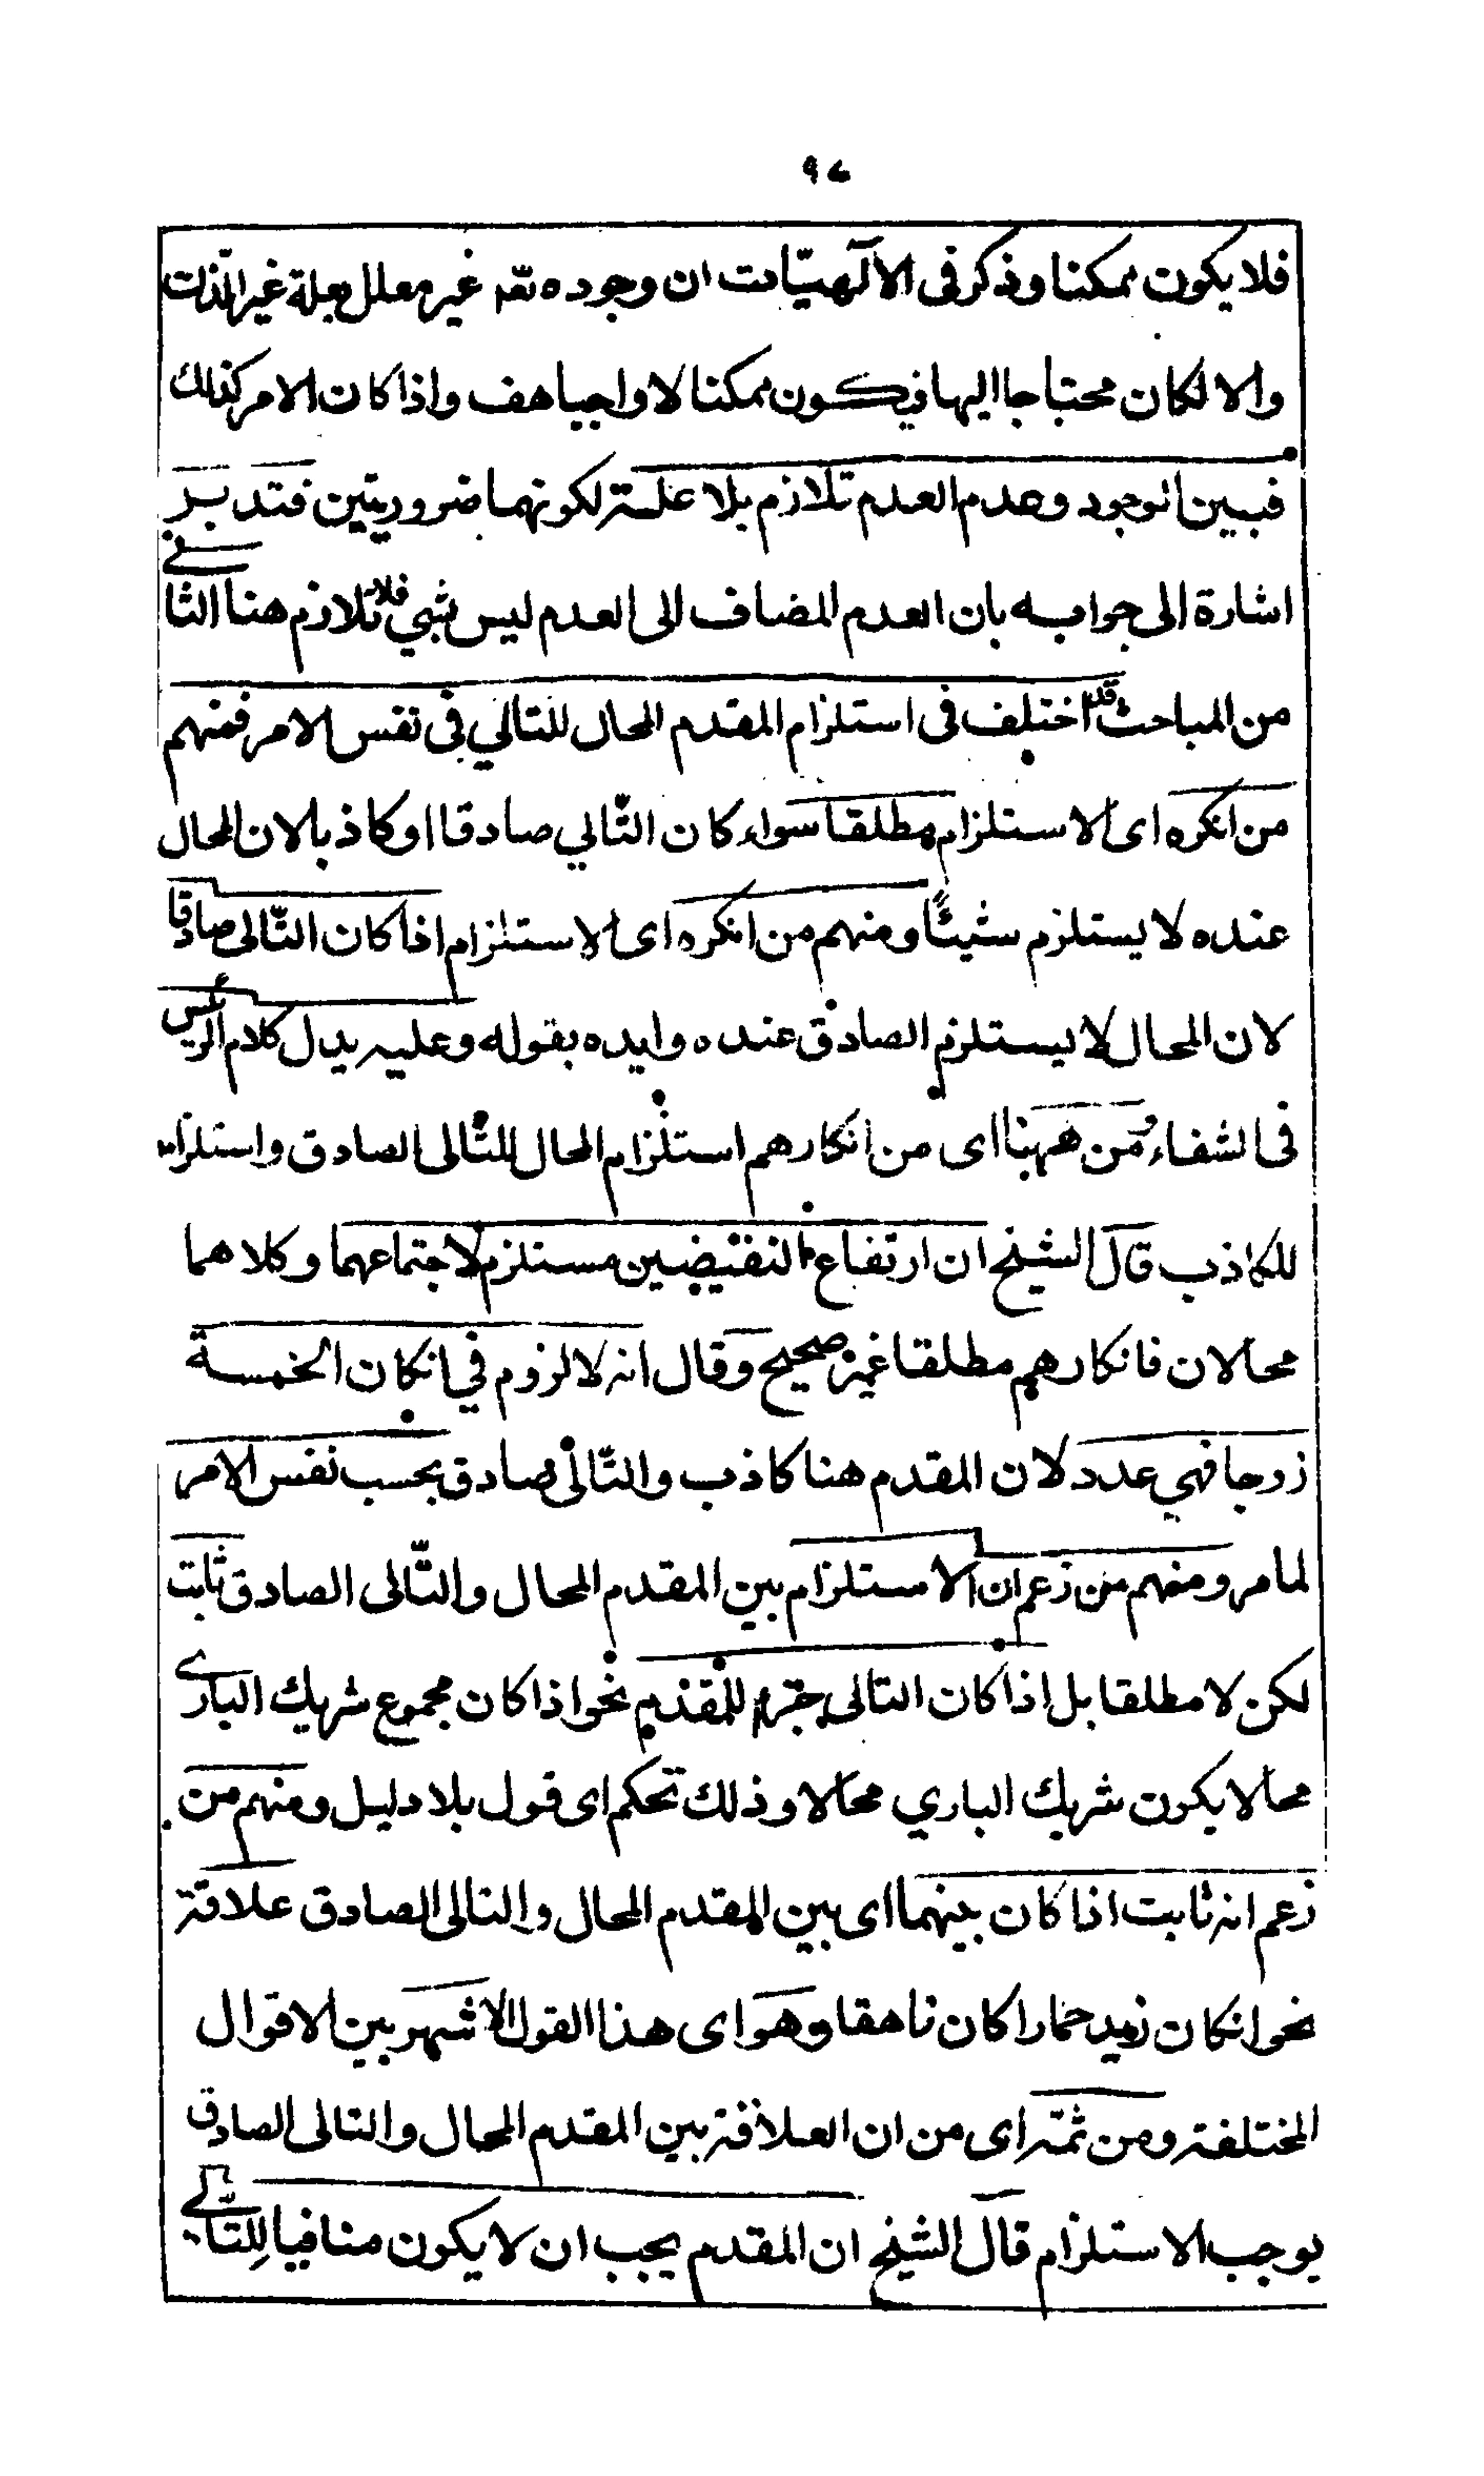 ٩٧
فلا يكون ممكنا وذكر فى الآلهيّات ان وجوده تعم غير معلل بعلة غير الذات
والا لكان محتاجا اليها فيكون ممكنا لا واجبا هف واذا كان الامر كذلك
فبين الوجود وعدم العدم تلازم بلا علة لكونهما ضروريتين فتدبر
اشارة الى جوابه بان العدم المضاف الى العدم ليس بشي فلا تلازم هنا الثانى
من المباحث قد اختلف فى استلزام المقدم المحال للتالي فى نفس الامر فمنهم
من انكره اى الاستلزام مطلقا سواء كان التّالي صادقا او كاذبا لان المحال
عنده لا يستلزم شيئًا ومنهم من انكره اى الاستلزام اذا كان التّالى صادقا
لان المحال لا يستلزم الصادق عنده وايده بقوله وعليه يدل كلام الرئيس
فى الشفاء ومن ههنا اى من انكارهم استلزام المحال للتّالى الصادق واستلزامه
للكاذب قال الشيخ ان ارتفاع النقيضين مستلزم لاجتماعهما وكلاهما
محالان فانكارهم مطلقا غير صحيح وقال انه لا لزوم في انكان الخمسة
زوجا فهي عدد لان المقدم هنا كاذب والتّالى صادق بحسب نفس الامر
لما مر ومنهم من زعم ان الاستلزام بين المقدم المحال والتّالى الصادق ثابت
لكن لا مطلقا بل اذا كان التالى جزء للمقدم نحو اذا كان مجموع شريك الباري
محالا يكون شريك الباري محالا وذلك تحكم اى قول بلا دليل ومنهم من
زعم انه ثابت اذا كان بينهما اى بين المقدم المحال والتالى الصادق علاقة
نحو انكان زيد حمارا كان ناهقا وهو اى هذا القول الاشهر بين الاقوال
المختلفة ومن ثمّة اى من ان العلاقة بين المقدم المحال والتالى الصادق
يوجب الاستلزام قال الشيخ ان المقدم يجب ان لا يكون منافيا لِلتّالي